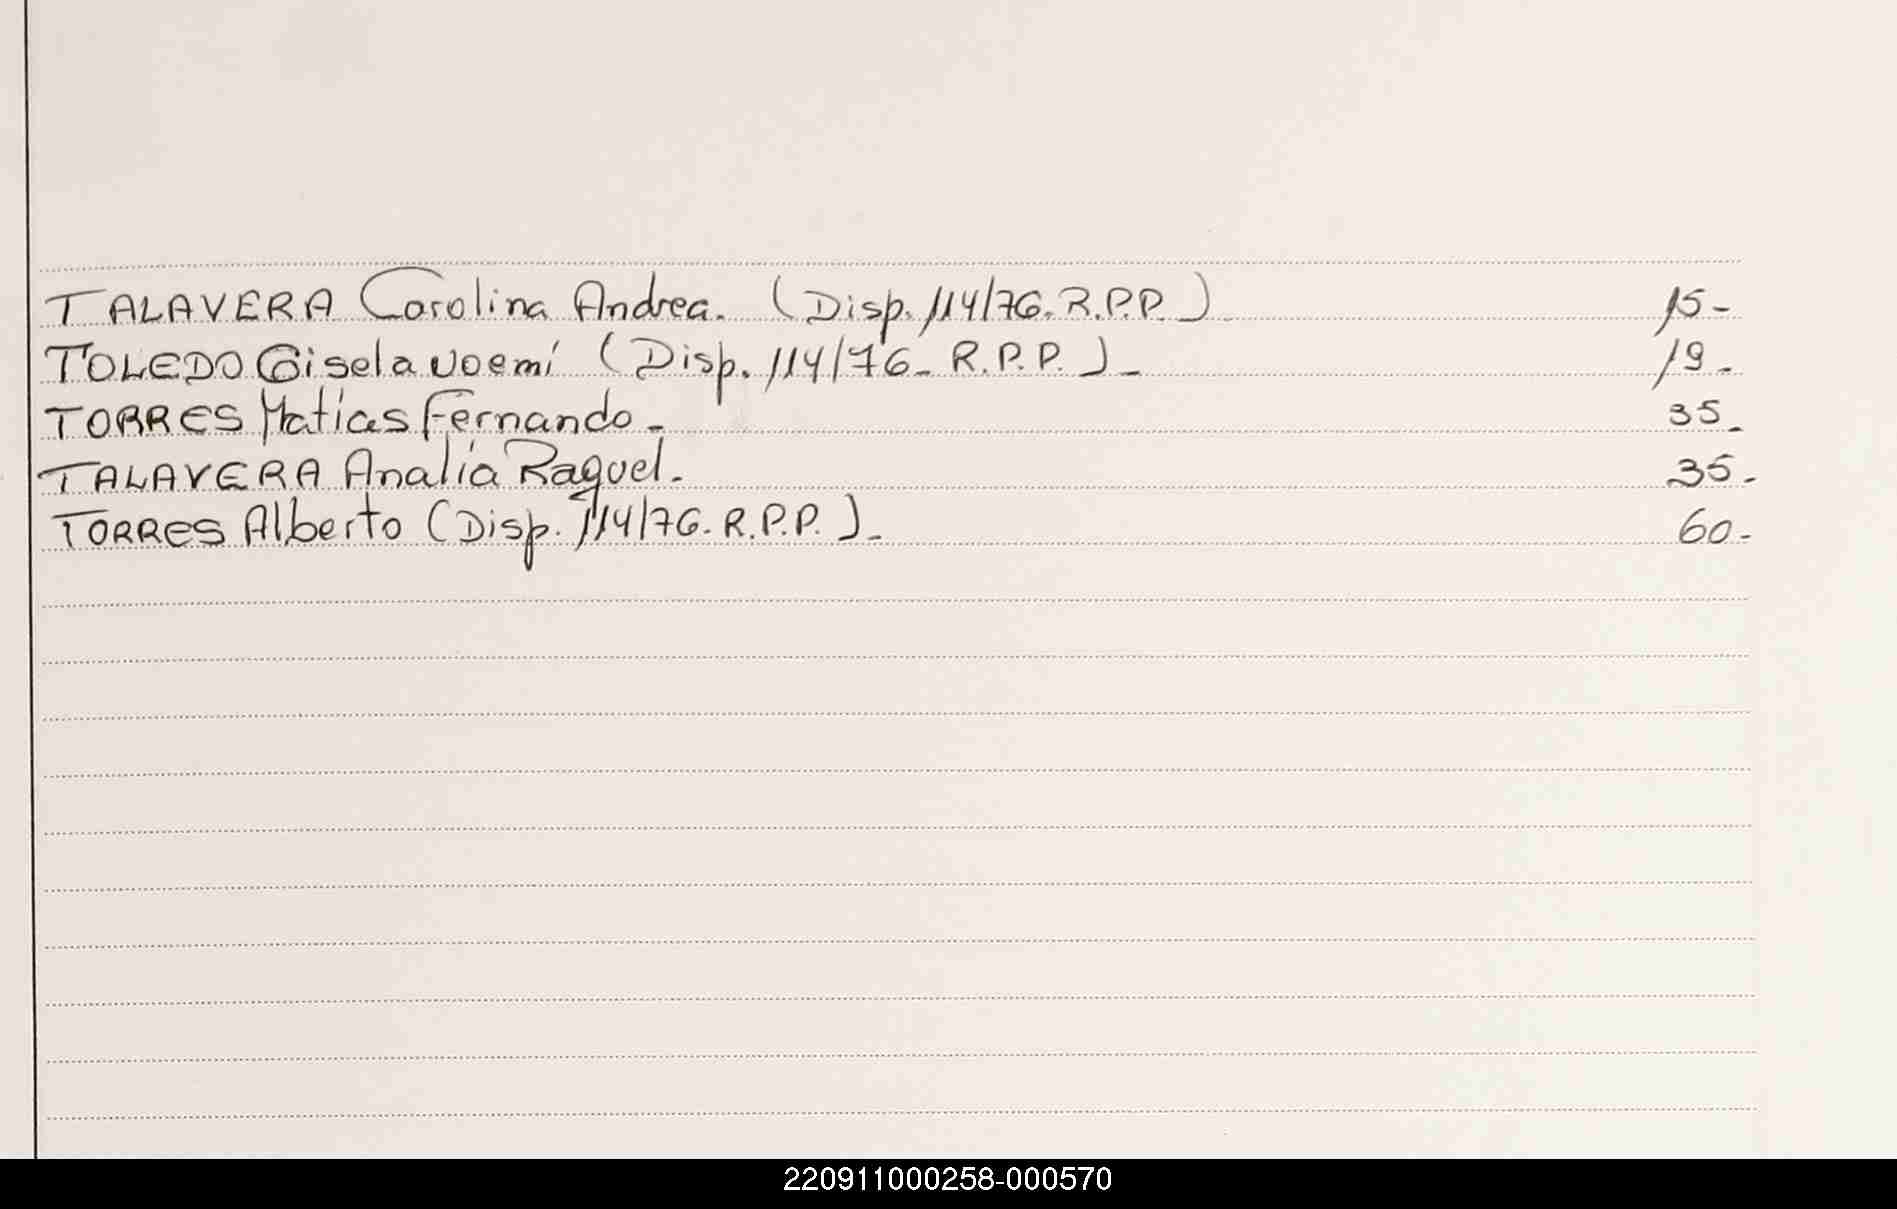 TALAVERA Carolina Andrea. (Disp. 114/76. R.P.P.) 15-
TOLEDO Gisela Noemí (Disp. 114/76- R.P.P.)- 19-
TORRES Matías Fernando- 35-
TALAVERA Analía Raquel. 35-
TORRES Alberto (Disp. 114/76. R.P.P.)- 60-
220911000258-000570